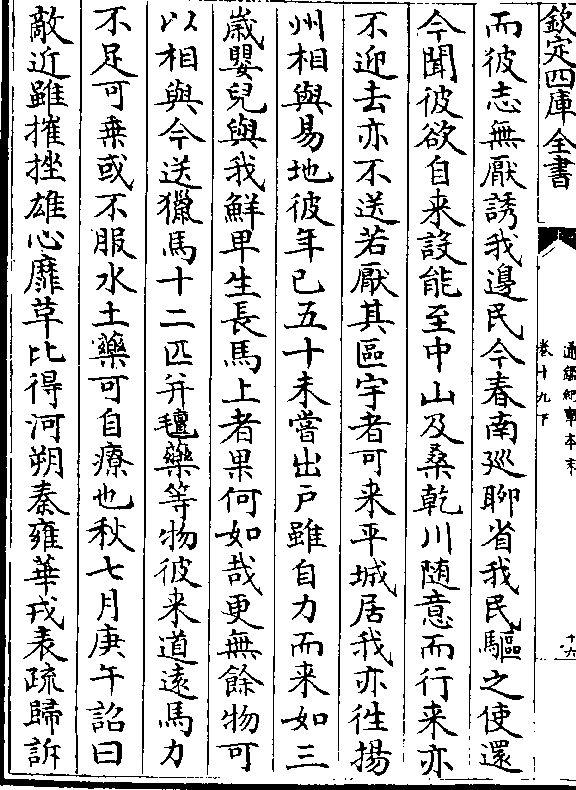 欽定四庫全書
通鑑紀事本末
卷十九下
十六
而彼志無厭誘我邊民今春南廵聊省我民驅之使還
今聞彼欲自来設能至中山及桑乾川随意而行来亦
不迎去亦不送若厭其區宇者可来平城居我亦徃揚
州相與易地彼年已五十未嘗出戶雖自力而来如三
歳嬰兒與我鮮卑生長馬上者果何如哉更無餘物可
以相與今送獵馬十二匹并氊藥等物彼来道逺馬力
不足可乗或不服水土藥可自療也秋七月庚午詔曰
敵近雖摧挫雄心靡草比得河朔秦雍華戎表疏歸訴